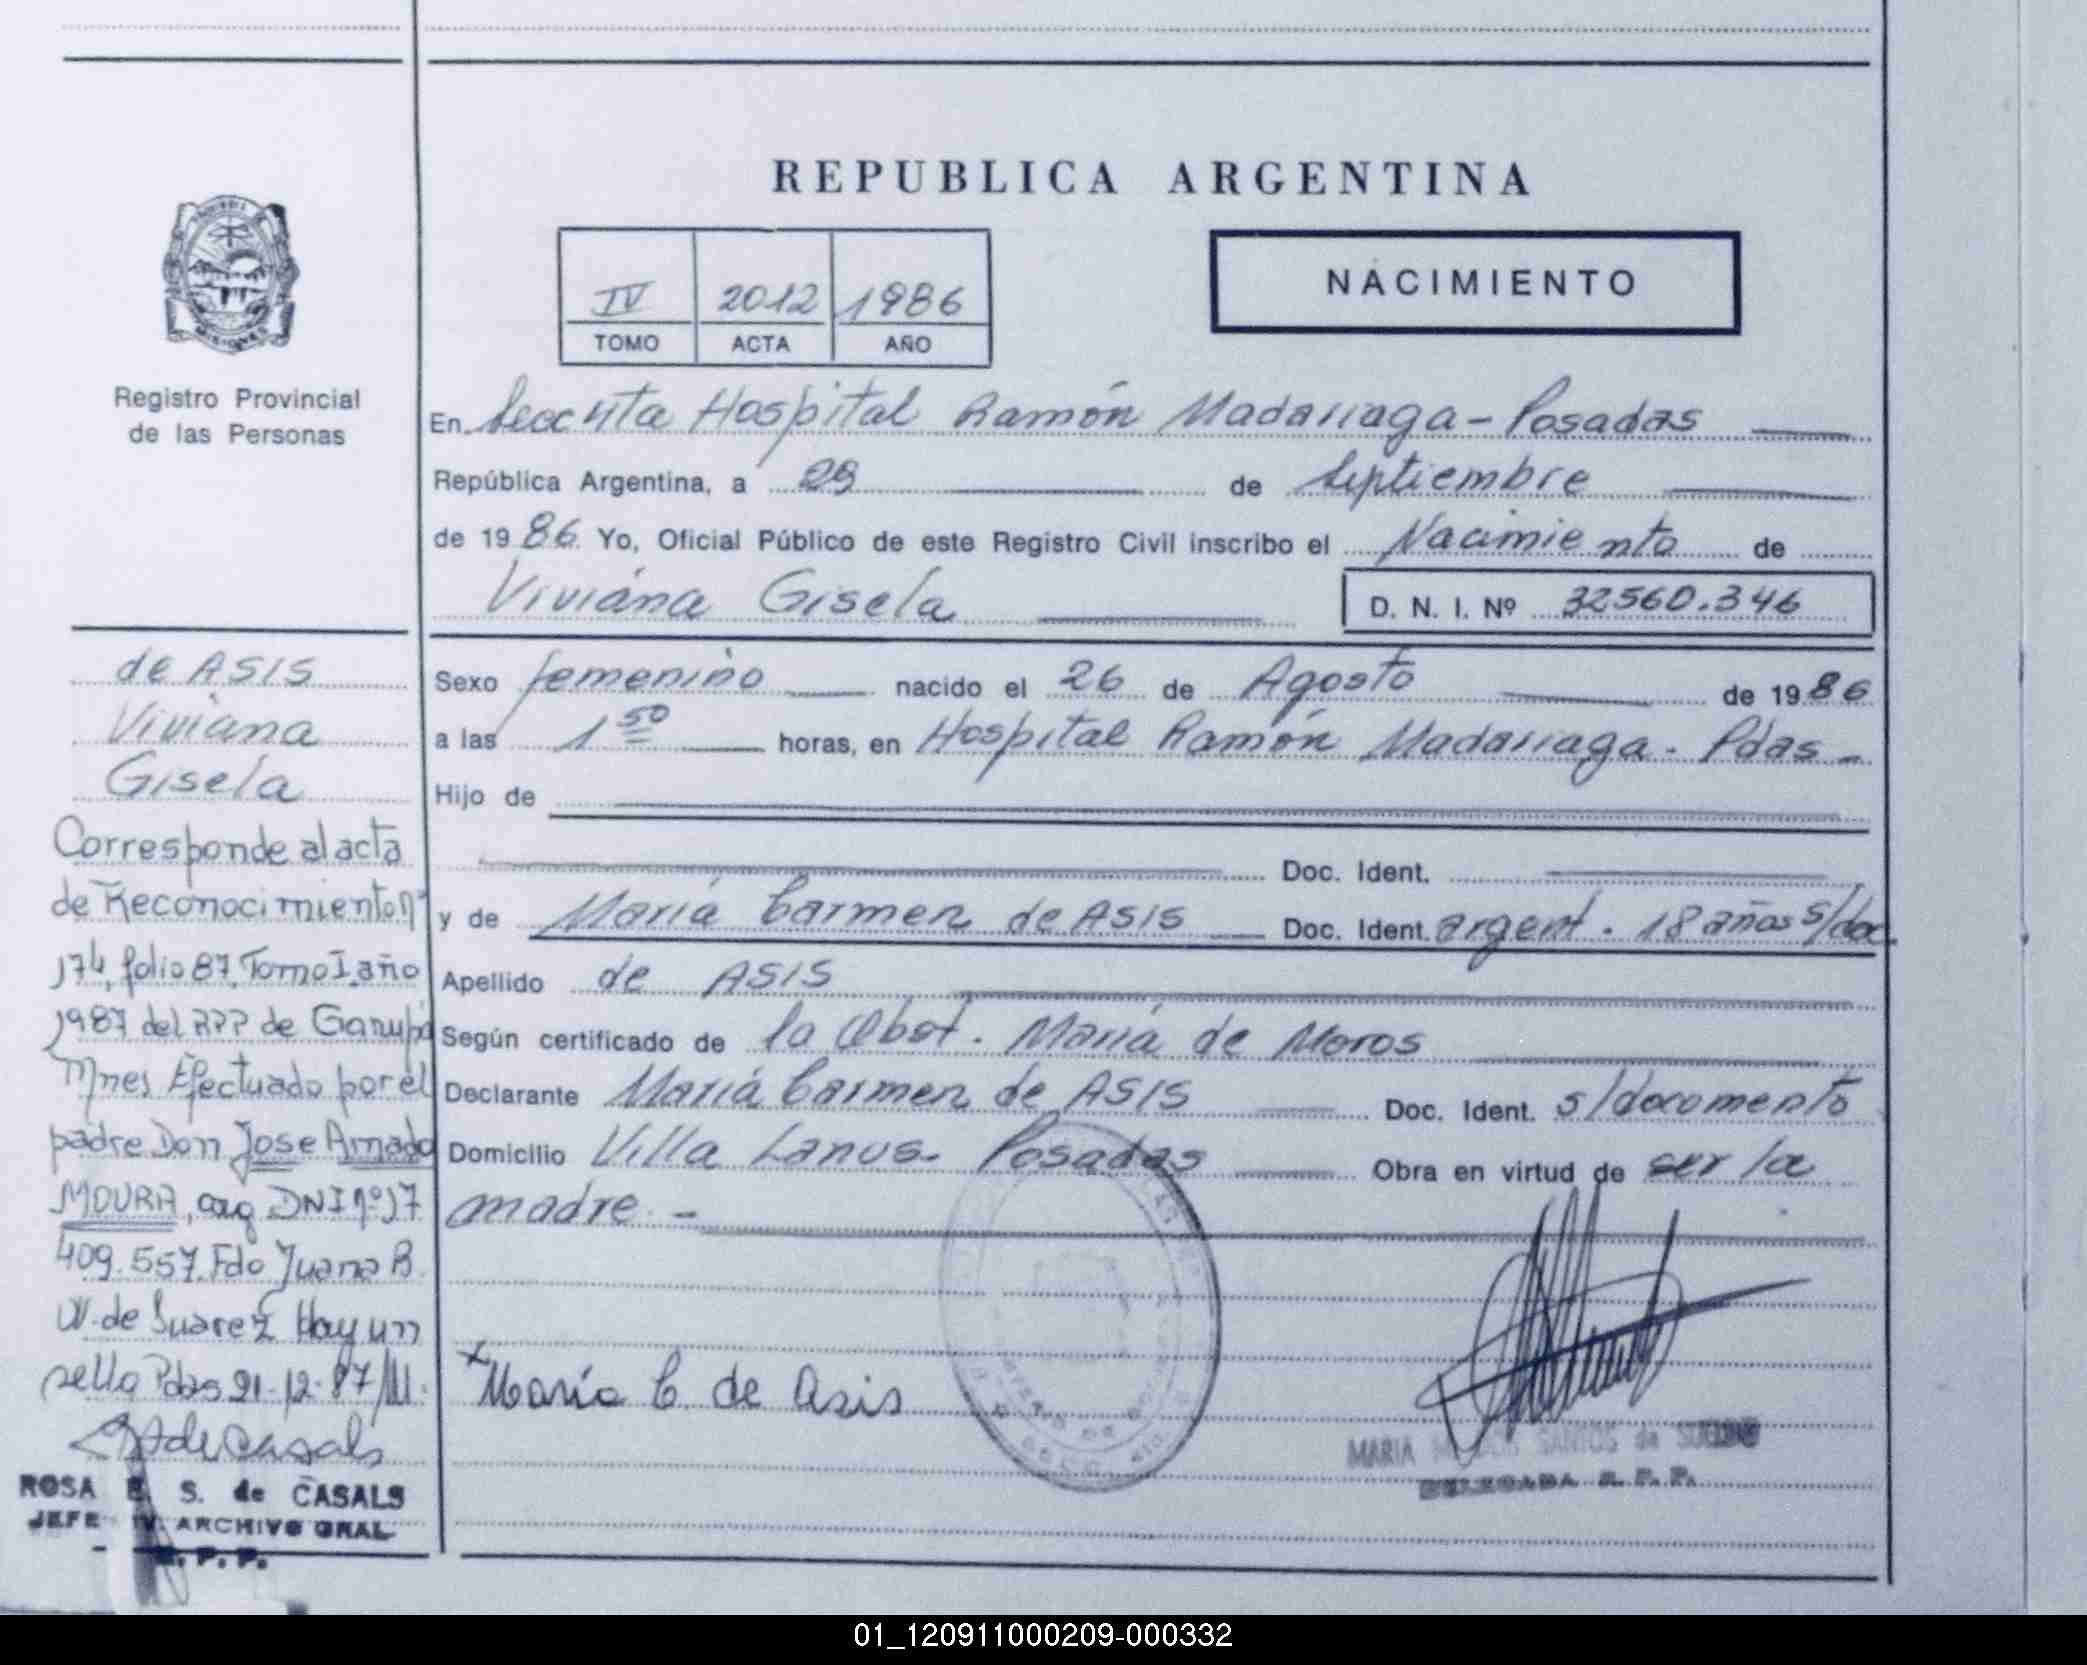 REPUBLICA ARGENTINA
IV 2012 1986
TOMO ACTA AÑO
NACIMIENTO
Registro Provincial
de las Personas
En Hospital Ramón Madariaga - Posadas
República Argentina, a 29 de Septiembre
de 1986 Yo, Oficial Público de este Registro Civil inscribo el Nacimiento de
Viviana Gisela D. N. I. Nº 32560.346
Sexo femenino nacido el 26 de Agosto de 1986
a las 1 50 horas, en Hospital Ramón Madariaga - Pdas -
Hijo de
Doc. Ident.
y de María Carmen de ASIS Doc. Ident. argent. 18 años s/doc.
Apellido de ASIS
Según certificado de la Obst. María de Moros
Declarante María Carmen de ASIS Doc. Ident. s/documento
Domicilio Villa Lanus - Posadas Obra en virtud de ser la
madre -
María C. de Asis
MARIA SANTOS de
DELEGADA R. P. P.
de ASIS
Viviana
Gisela
Corresponde al acta
de Reconocimiento nº
174, folio 87, Tomo I año
1987 del RPP de Garupá
Mnes Efectuado por el
padre Don Jose Amado
MOURA, arg DNI nº 17
409.557. Fdo Juana B.
W. de Suarez Hay un
sello Pdas 21-12-87/M.
de Casals
ROSA E. S. de CASALS
JEFE ARCHIVO GRAL
R. P. P.
01_120911000209-000332